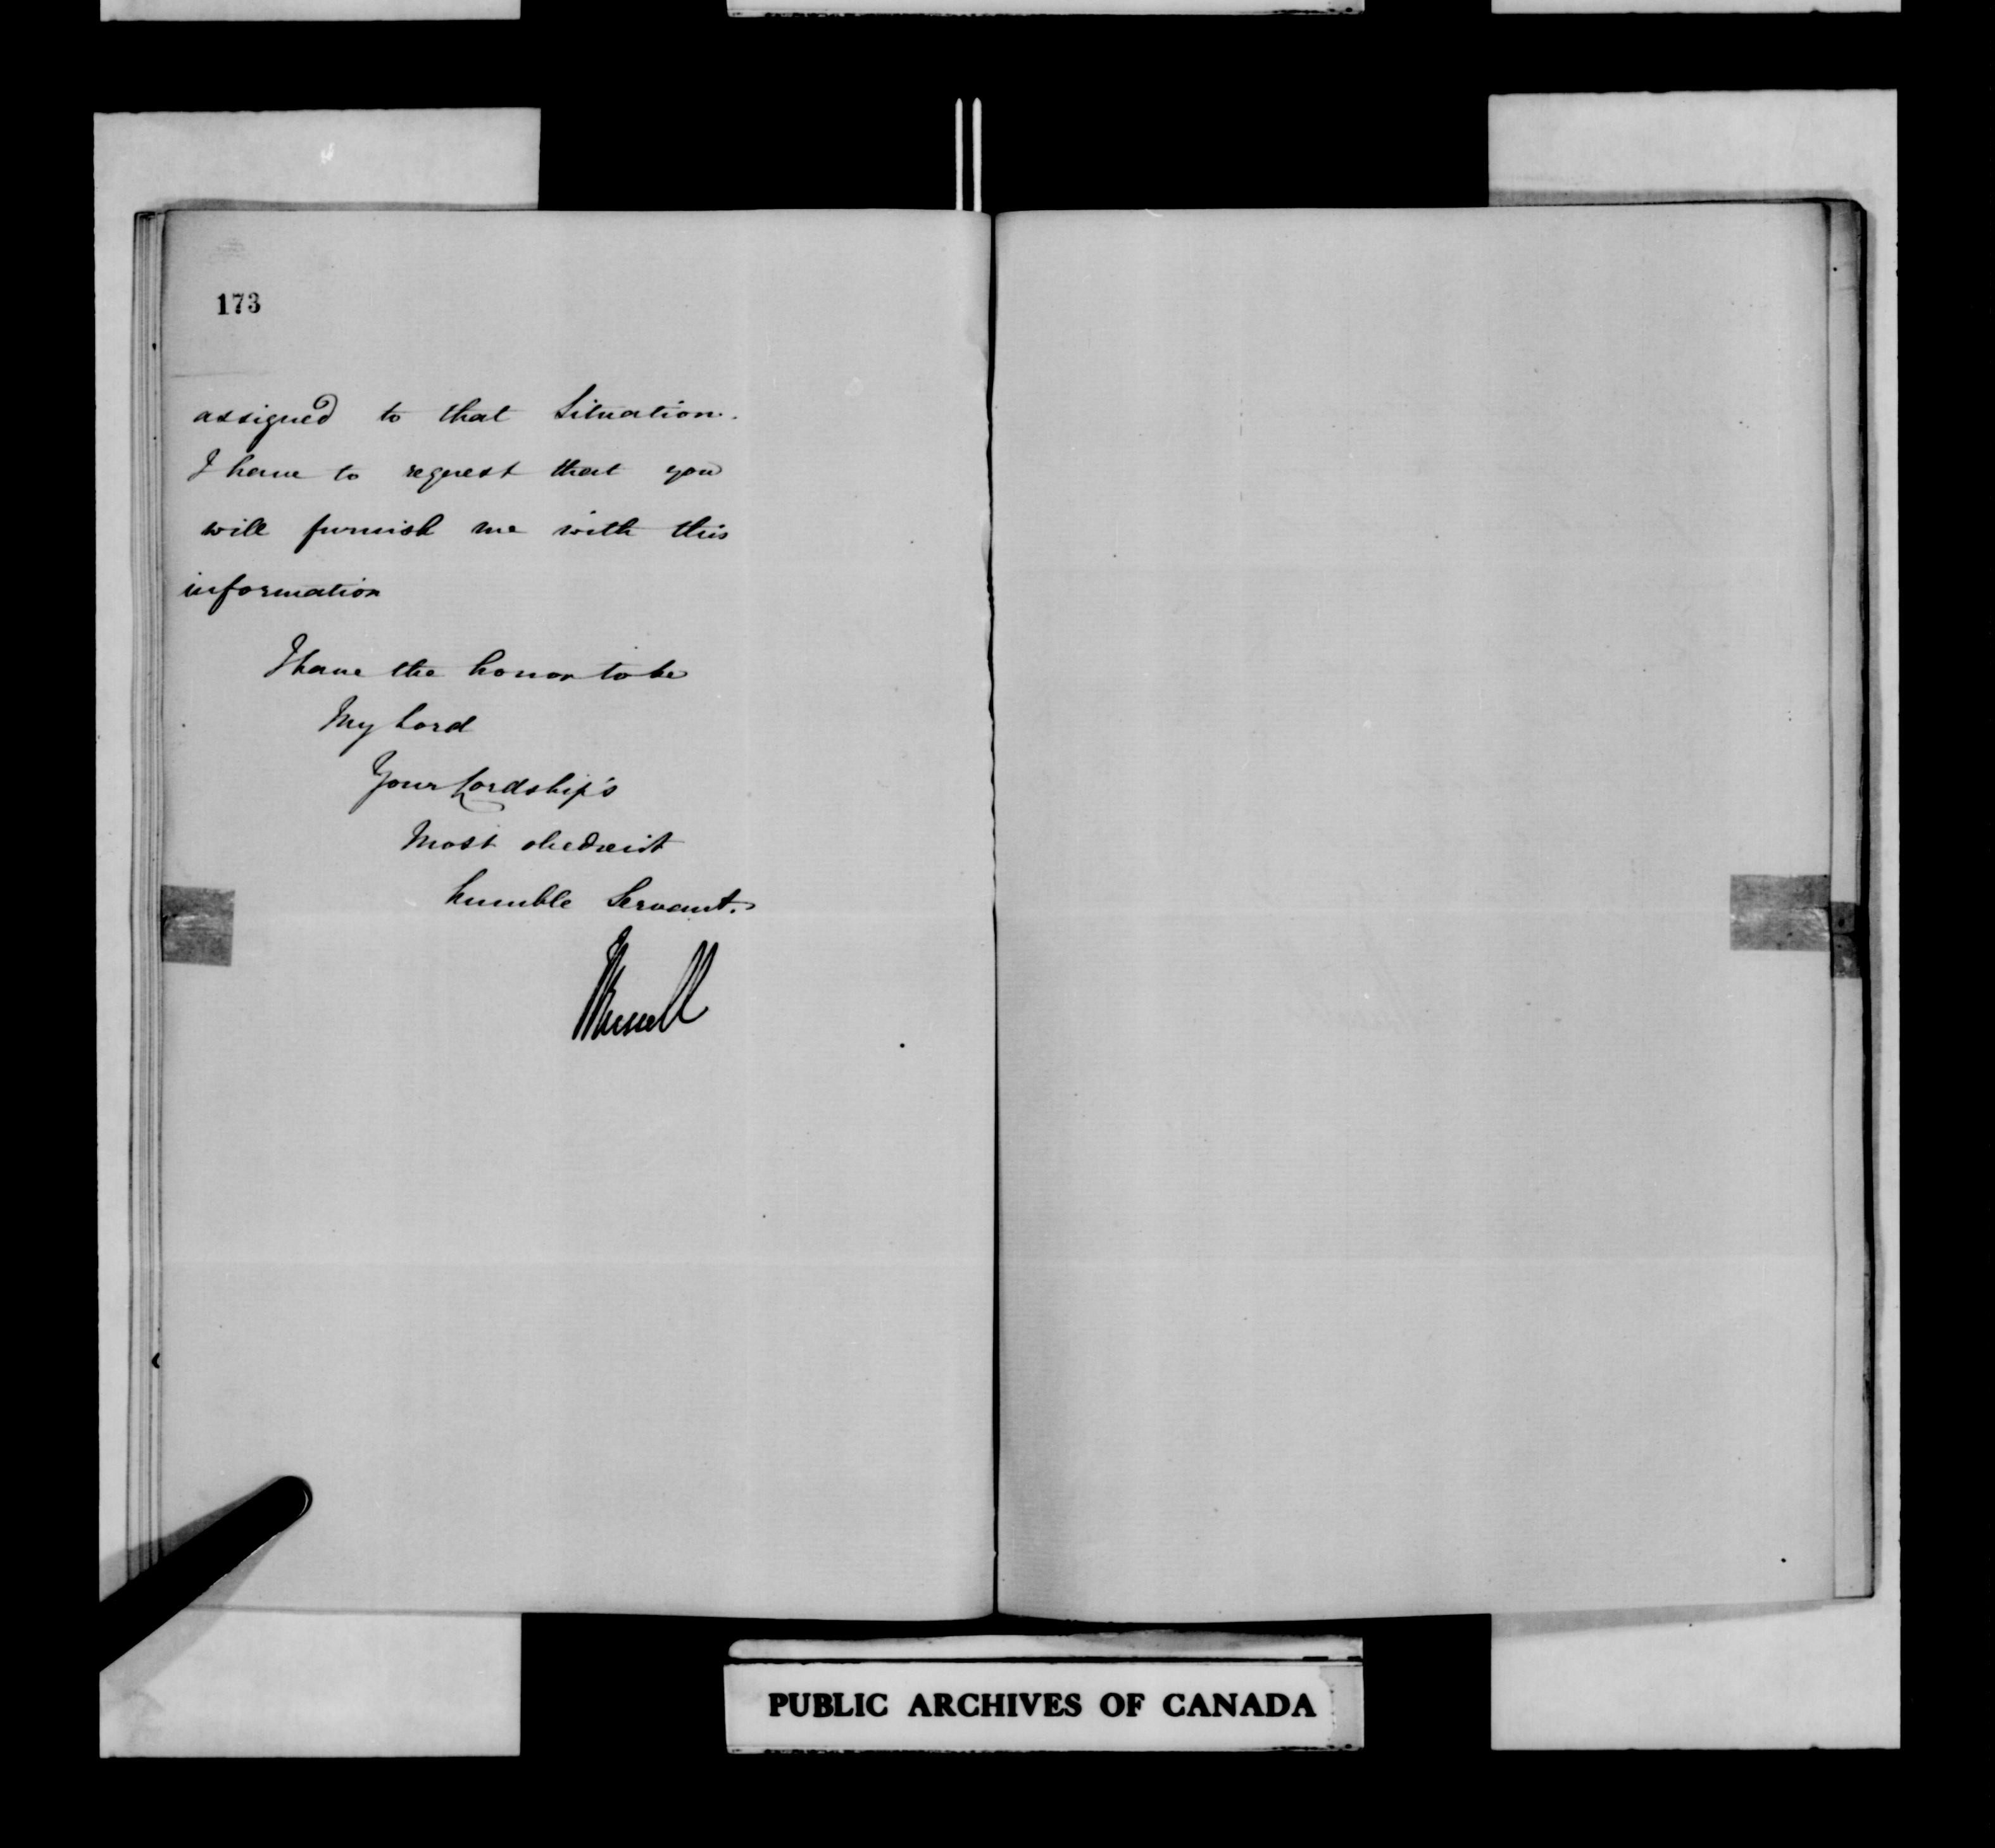 173
assigned to that Situation.
I have to request that you
will furnish me with this
information
I have the honor to be
My Lord
Your Lordship's
Most obedient
humble Servant.
JRussell
PUBLIC ARCHIVES OF CANADA